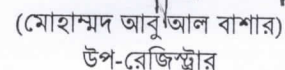 (মোহাম্মদ আবু আল বাশার)
উপ-রেজিস্ট্রার